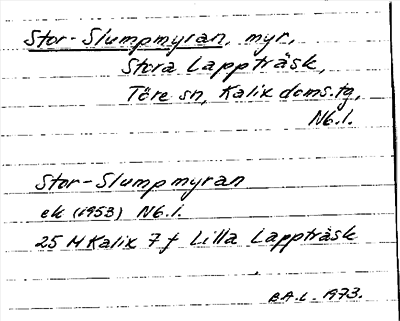 Stor-Slumpmyran, myr,
Stora Lappträsk,
Töre sn, Kalix doms.tg,
Nb.l.
Stor-Slumpmyran
ek (1953) Nb.l.
25 M Kalix 7 f Lilla Lappträsk
B.A.L. 1973.